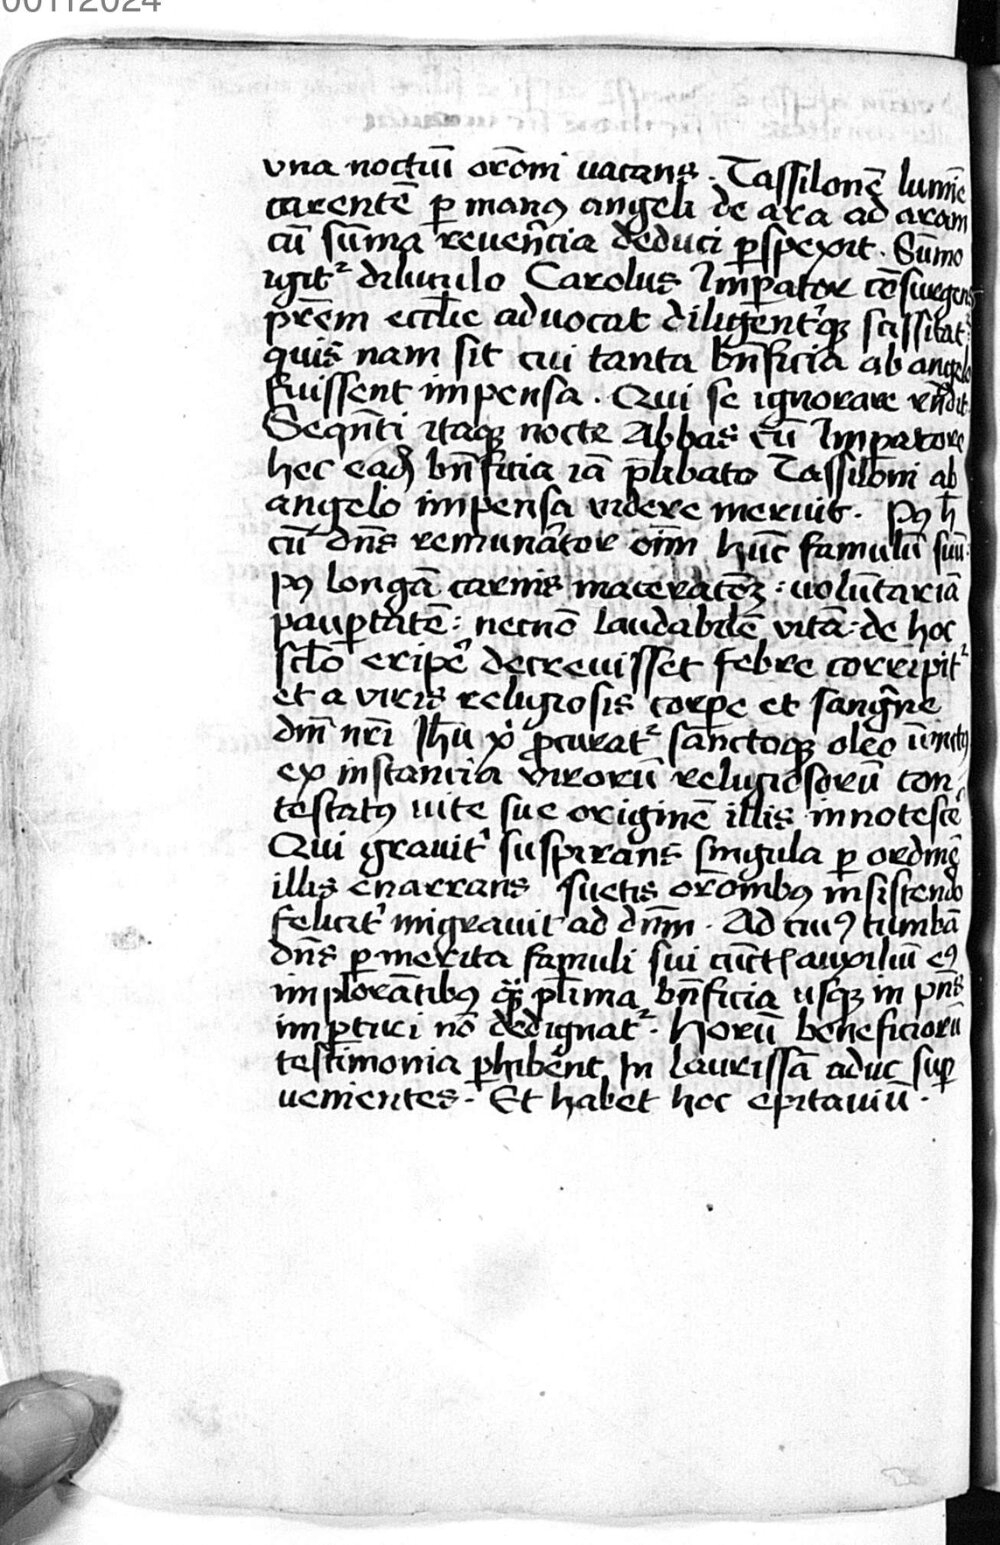 00112024
vna noctiū orōni uacans. Tassilonē lumīe
carentē ꝑ manꝰ angeli de ara ad aram
cū sūma reuerēcia deduci ꝑspexit. Sūmo
igitᷣ diluculo Carolus Imꝑator cōsurgens
prēm ecclīe aduocat diligentꝰqꝫ scissitatᷣ
quis nam sit cui tanta bn̄ficia ab angelo
fuissent impensa. Qui se ignorare rn̄dit
Seqn̄ti itaqꝫ nocte Abbas cū Imꝑatore
hec eadē bn̄ficia iā p̄libato Tassiloni ab
angelo impensa videre meruit. Pꝰ h̄
cū dn̄s remunātor oīm hūc famulū suū
pꝰ longā carnis maceratōeꝫ: uolūtariā
pauꝑtatē: necnō laudabilē vitā: de hoc
sclo eripe decreuisset febre corripitᷣ
et a viris religiosis corꝑe et sangīne
dn̄i nr̄i Jhū xp̄i ꝓcuratᷣ sanctoqꝫ oleo ūnctꝰ
ex instancia virorū religiosorū con
testatꝰ uite sue originē illis innotesce
Qui grauitᷣ suspirans singula ꝑ ordinē
illis enarrans suetis orōnibꝰ insistendo
felicitᷣ migrauit ad dn̄m. Ad cuiꝰ tumbā
dn̄s ꝑ merita famuli sui cūct auxiliū eꝰ
implorātibꝰ qꝫ plīma bn̄ficia usqꝫ in pn̄s
imꝑtiri nō dedignatᷣ. Horū beneficiorū
testimonia ꝑhibent In laurissā aduc suꝑ
uenientes. Et habet hoc epitauiū.